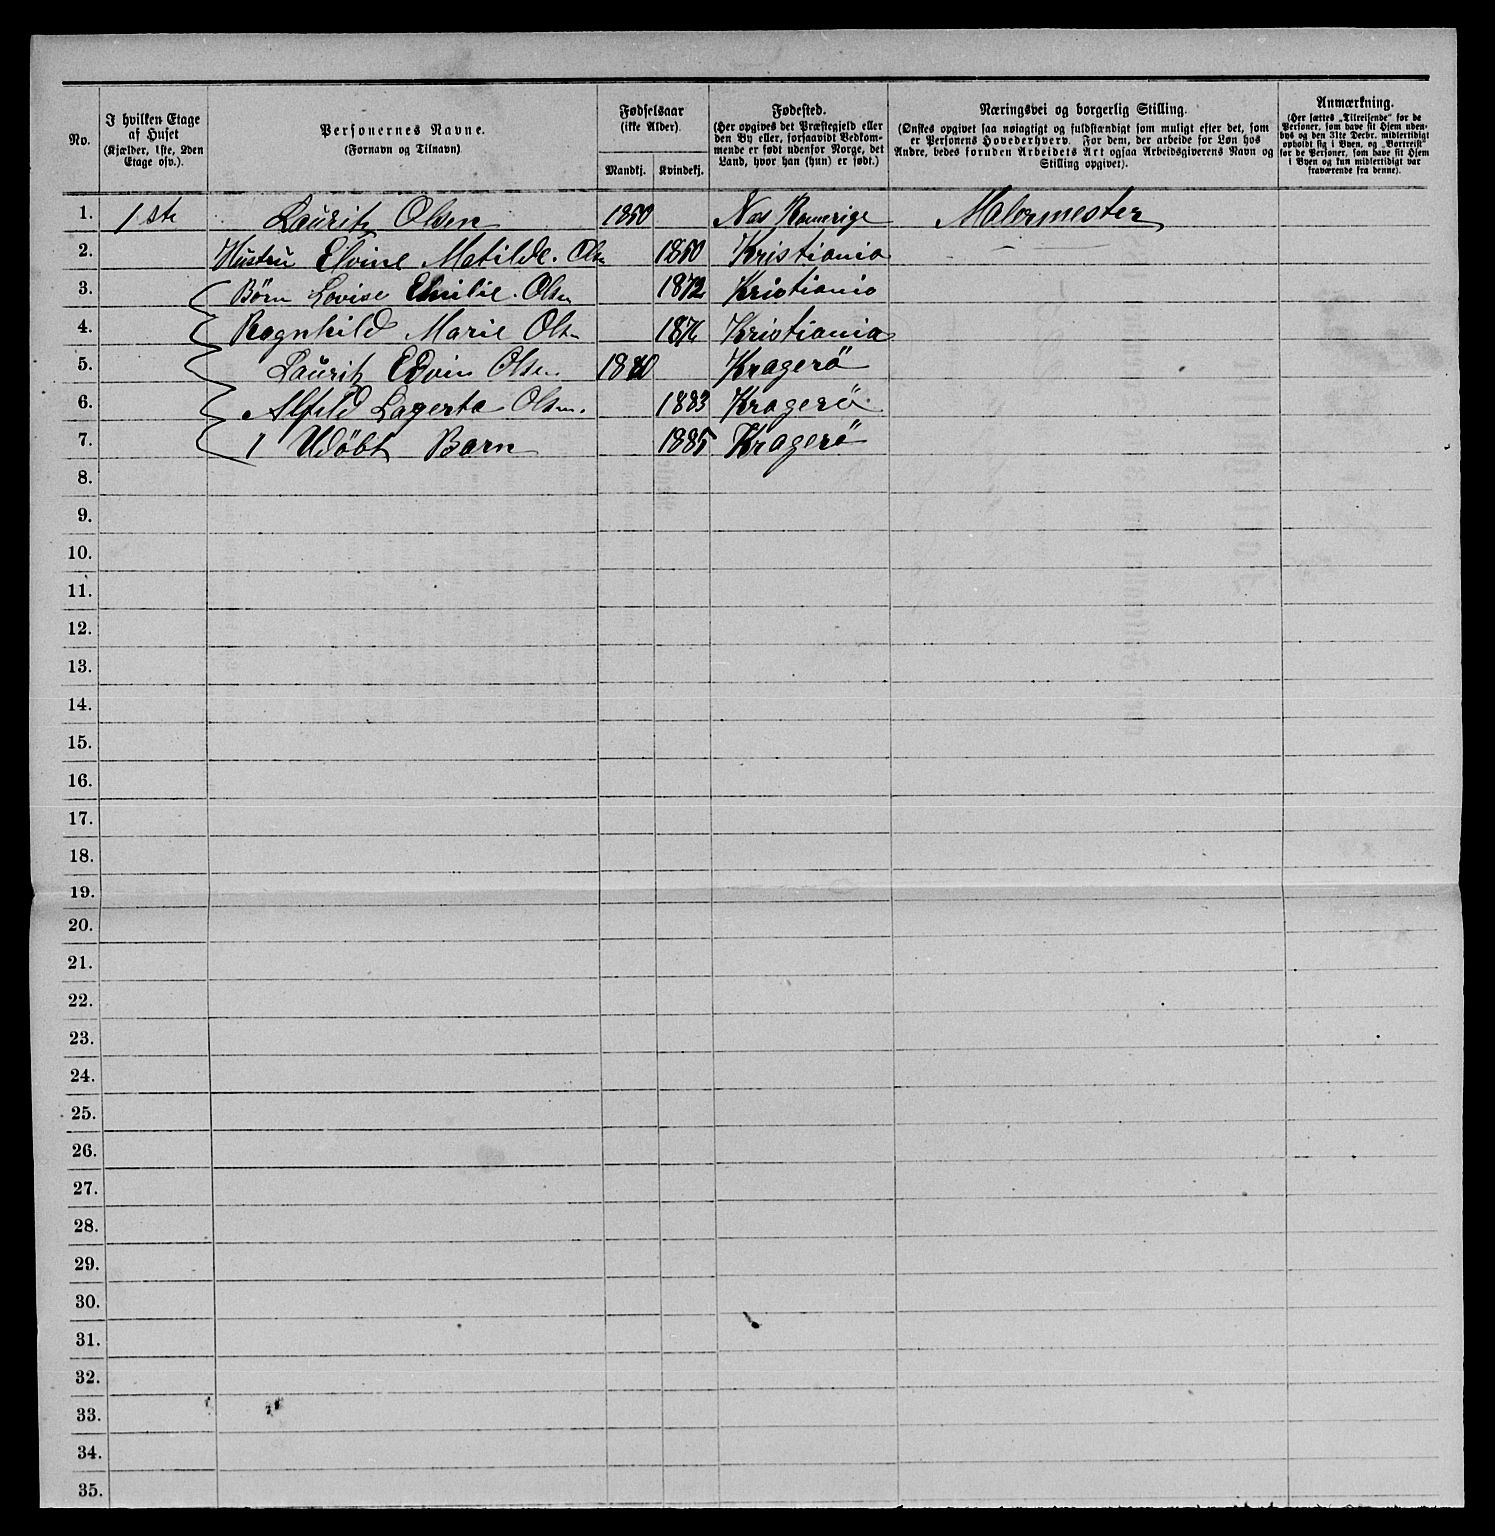 No.
I hvilken Etage af Huset (Kjælder, 1ste, 2den Etage osv.).
Personernes Navne. (Fornavn og Tilnavn)
Fødselsaar (ikke Alder).
Mandkj. Kvindekj.
Fødested. (Her opgives det Præstegjeld eller den By eller, forsaavidt Vedkommende er født udenfor Norge, det Land, hvor han (hun) er født.)
Næringsvei og borgerlig Stilling. (Ønskes opgivet saa nøiagtigt og fuldstændigt som muligt efter det, som er Personens Hovederhverv. For dem, der arbeide for Løn hos Andre, bedes foruden Arbeidets Art ogsaa Arbeidsgiverens Navn og Stilling opgivet).
Anmærkning. (Her sættes „Tilreisende“ for de Personer, som have sit Hjem udenbys og den 31te Decbr. midlertidigt opholdt sig i Byen, og „Bortreist“ for de Personer, som have sit Hjem i Byen og kun midlertidigt var fraværende fra denne).
1. 1 ste Lauritz Olsen 1850 Nes Romerige Malermester
2. Hustru Elvine Matilde. Olsen 1850 Kristiania
3. Børn Lovise Emilie. Olsen 1872 Kristiania
4. Ragnhild Marie Olsen 1876 Kristiania
5. Lauritz Edvin Olsen 1880 Kragerö
6. Alfild Lagerta Olsen. 1883 Kragerö
7. 1 Udøbt Barn 1885 Kragerö
8.
9.
10.
11.
12.
13.
14.
15.
16.
17.
18.
19.
20.
21.
22.
23.
24.
25.
26.
27.
28.
29.
30.
31.
32.
33.
34.
35.